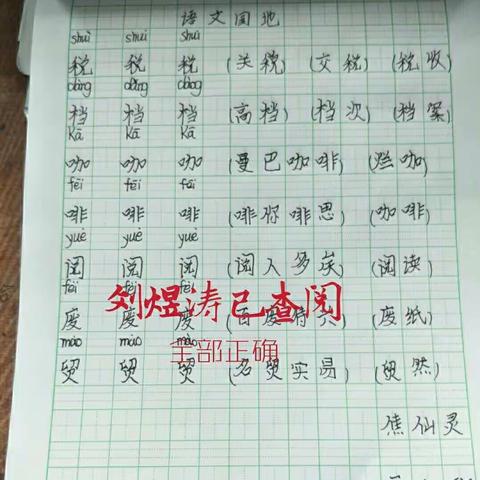 语文园地
shuì shuì shuì
税 税 税 (关税) (交税) (税收)
dàng dàng dàng
档 档 档 (高档) (档次) (档案)
kā kā kā
咖 咖 咖 (曼巴咖啡) (烂咖)
fēi fēi fēi
啡 啡 啡 (啡你啡思) (咖啡)
yuè yuè yuè
阅 阅 阅 (阅人多矣) (阅读)
fèi fèi fèi
刘煜涛已查阅
废 废 废 (百废待兴) (废纸)
mào mào mào
全部正确
贸 贸 贸 (名贸实易) (贸然)
焦仙灵